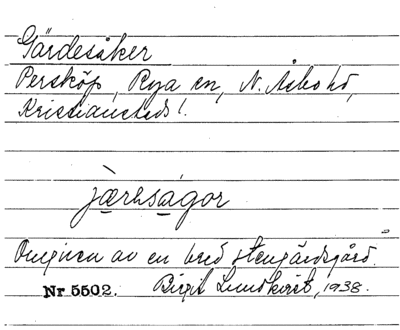 Gärdesåker
Persköp, Rya sn, N. Åsbo hd,
Kristianstads l.
jæ̀rəsågor
Omgiven av en bred stengärdsgård.
Nr 5502. Birgit Lundkvist, 1938.